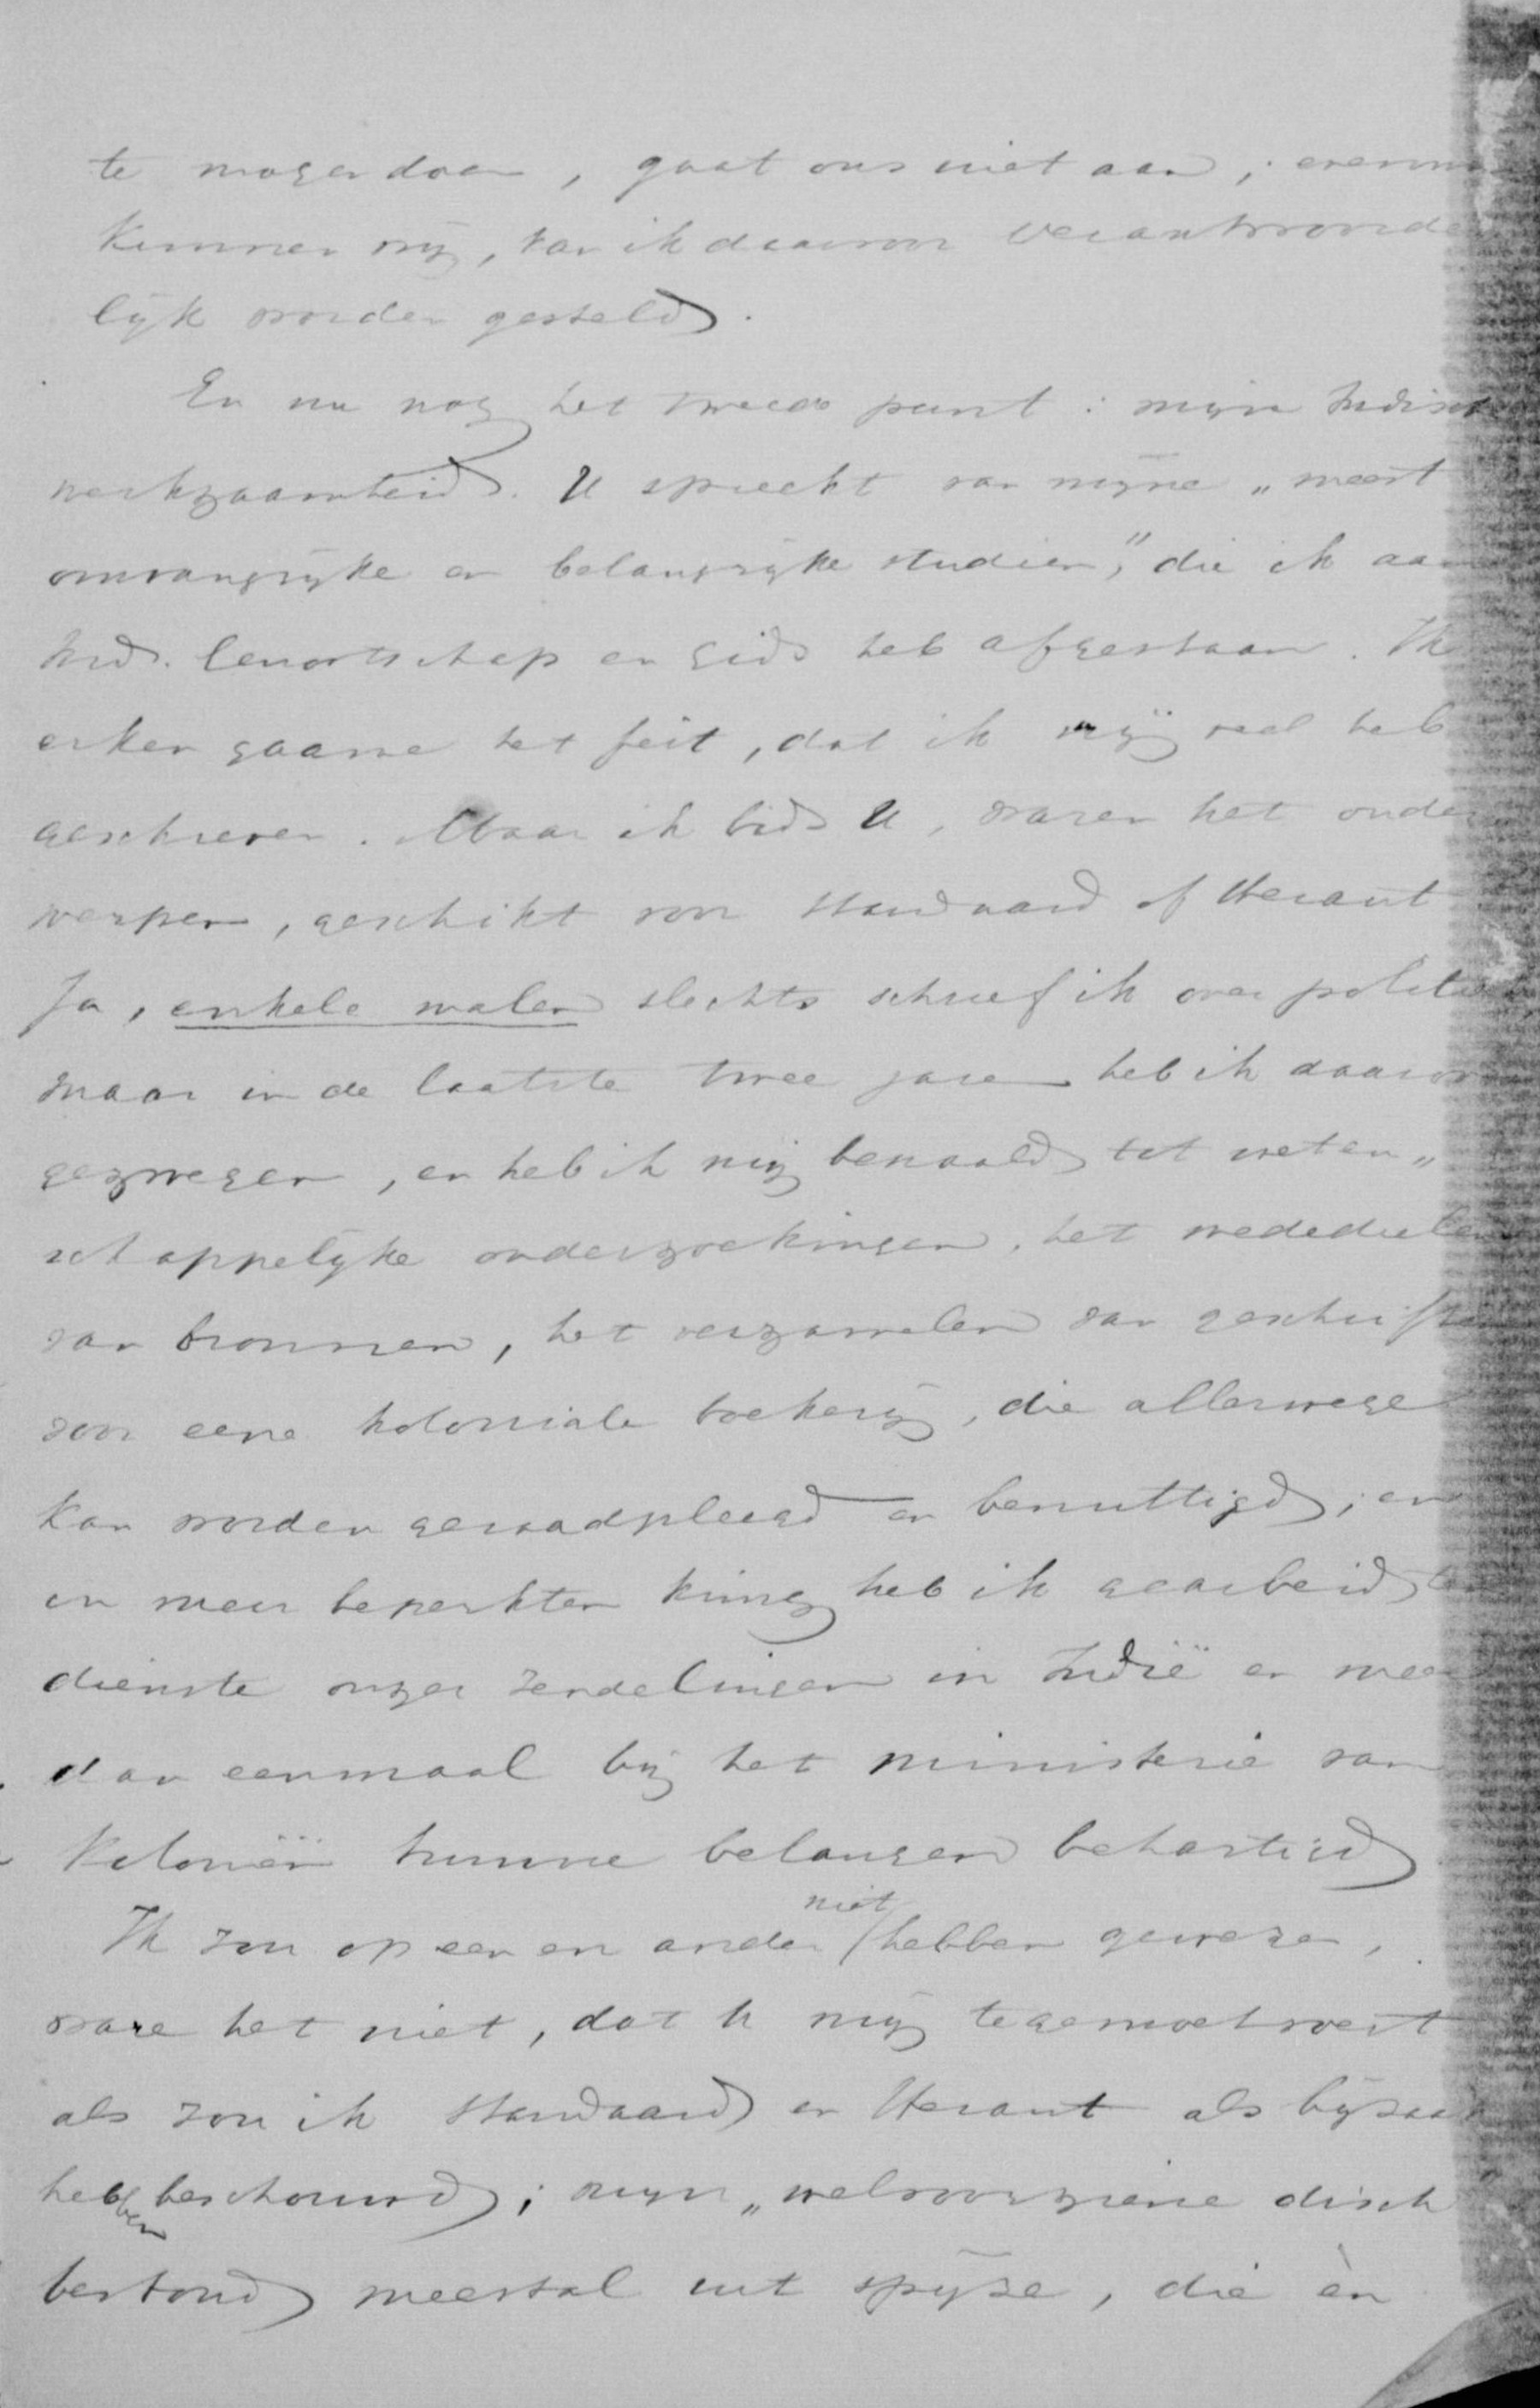 te mogen doen, gaat ons niet aan; evenmin
kunnen wij, kan ik daarvoor verantwoorde
lijk worden gesteld.
En nu nog het tweede punt: mijn Indische
werkzaamheid. U spreekt van mijne „meest
omvangrijke en belangrijke studiën", die ik aan
Ind. Genootschap en Gids heb afgestaan. Ik
erken gaarne het feit, dat ik vrij veel heb
geschreven. Maar ik bid U, waren het onder
werpen, geschikt voor Standaard of Heraut
Ja, enkele malen slechts schreef ik over politiek,
maar in de laatste twee jaren heb ik daarover
gezwegen, en heb ik mij bepaald tot weten„
schappelijke onderzoekingen, het mededeelen
van bronnen, het verzamelen van geschriften
voor eene koloniale boekerij, die allerwege
kan worden geraadpleegd en benuttigd; en
in meer beperkten kring heb ik gearbeid ten
dienste onzer zendelingen in Indië en meer
dan eenmaal bij het ministerie van
Koloniën hunne belangen behartigd
Ik zou op een en ander niet hebben gewezen,
ware het niet, dat U mij tegemoetvoert
als zou ik Standaard en Heraut als bijzaak
hebben beschouwd; mijn „welvoorziene disch"
bestond meestal uit spijze, die èn